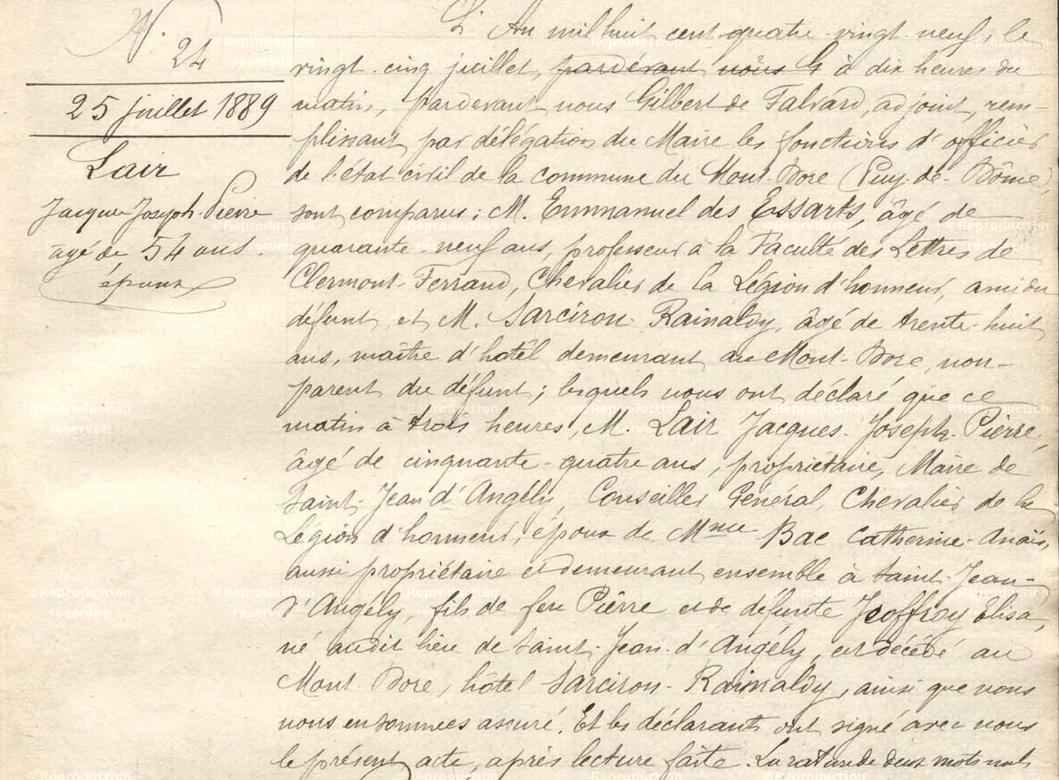 N. 24
25 juillet 1889
Lair
Jacques Joseph Pierre
âgé de 54 ans.
époux
L'An mil huit cent quatre-vingt-neuf, le
vingt-cinq juillet, pardevant nous G à dix heures du
matin, Pardevant nous Gilbert de Falvard, adjoint, rem-
plissant par délégation du Maire les fonctions d'officier
de l'état civil de la commune du Mont-Dore (Puy-de-Dôme)
sont comparus : M. Emmanuel des Essarts, âgé de
quarante-neuf ans, professeur à la Faculté des Lettres de
Clermont-Ferrand, Chevalier de la Légion d'honneur, ami du
défunt, et M. Sarciron-Rainaldy, âgé de trente-huit
ans, maître d'hôtel demeurant au Mont-Dore, non-
parent du défunt ; lesquels nous ont déclaré que ce
matin à trois heures, M. Lair Jacques-Joseph-Pierre,
âgé de cinquante-quatre ans, propriétaire, Maire de
Saint-Jean d'Angély, Conseiller Général, Chevalier de la
Légion d'honneur, époux de Mme Bac Catherine-Anaïs,
aussi propriétaire et demeurant ensemble à Saint-Jean-
d'Angély, fils de feu Pierre et de défunte Jeoffroy Elisa,
né audit lieu de Saint-Jean-d'Angély, est décédé au
Mont-Dore, hôtel Sarciron-Rainaldy, ainsi que nous
nous en sommes assuré. Et les déclarants ont signé avec nous
le présent acte, après lecture faite. La rature de deux mots nuls